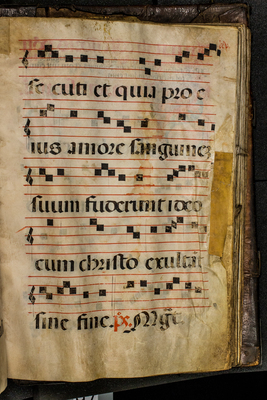 se cuti et quia pro e
ius amore sanguinez
suum fuderunt ideo
cum christo exultāt
sine fine. p̄x. Mgt.